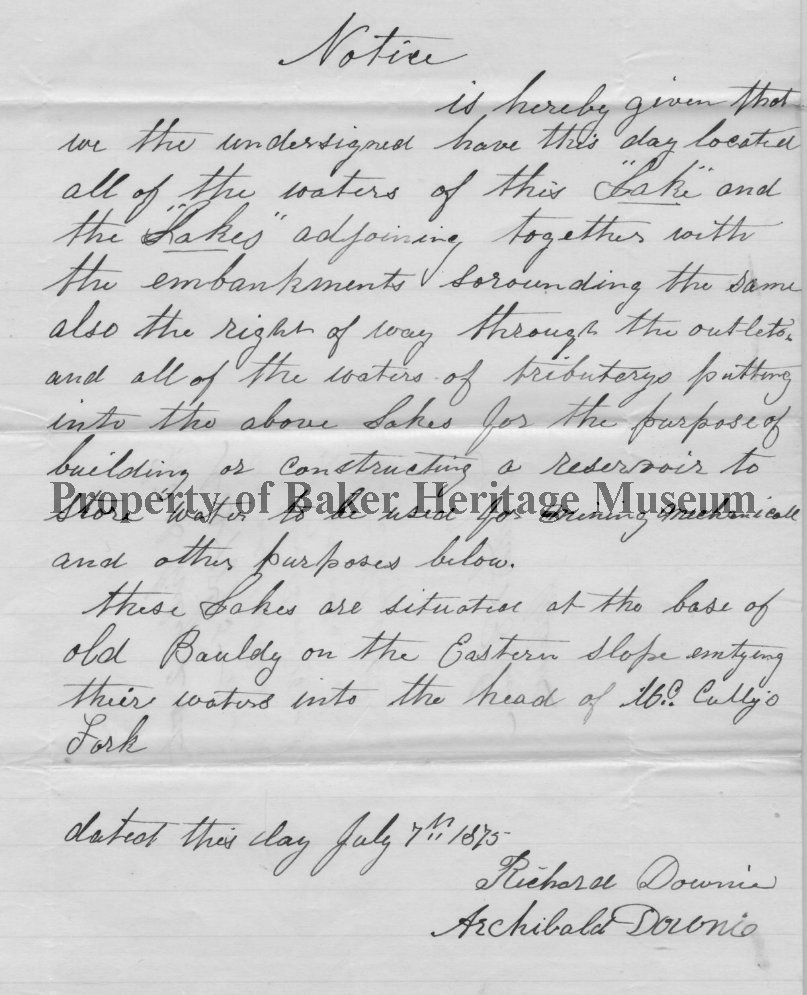 Notice
is hereby given that
we the undersigned have this day located
all of the waters of this "Lake" and
the "Lakes" adjoining together with
the embankments sorounding the same
also the right of way through the outlets
and all of the waters of tributerys putting
into the above Lakes for the purpose of
building or constructing a reservoir to
Property of Baker Heritage Museum
store water to be used for mining mechanicall
and other purposes below.
these Lakes are situated at the base of
old Bauldy on the Eastern slope emtying
their waters into the head of Mc. Cullys
Fork
dated this day July 7th 1875
Richard Downie
Archibald Downie